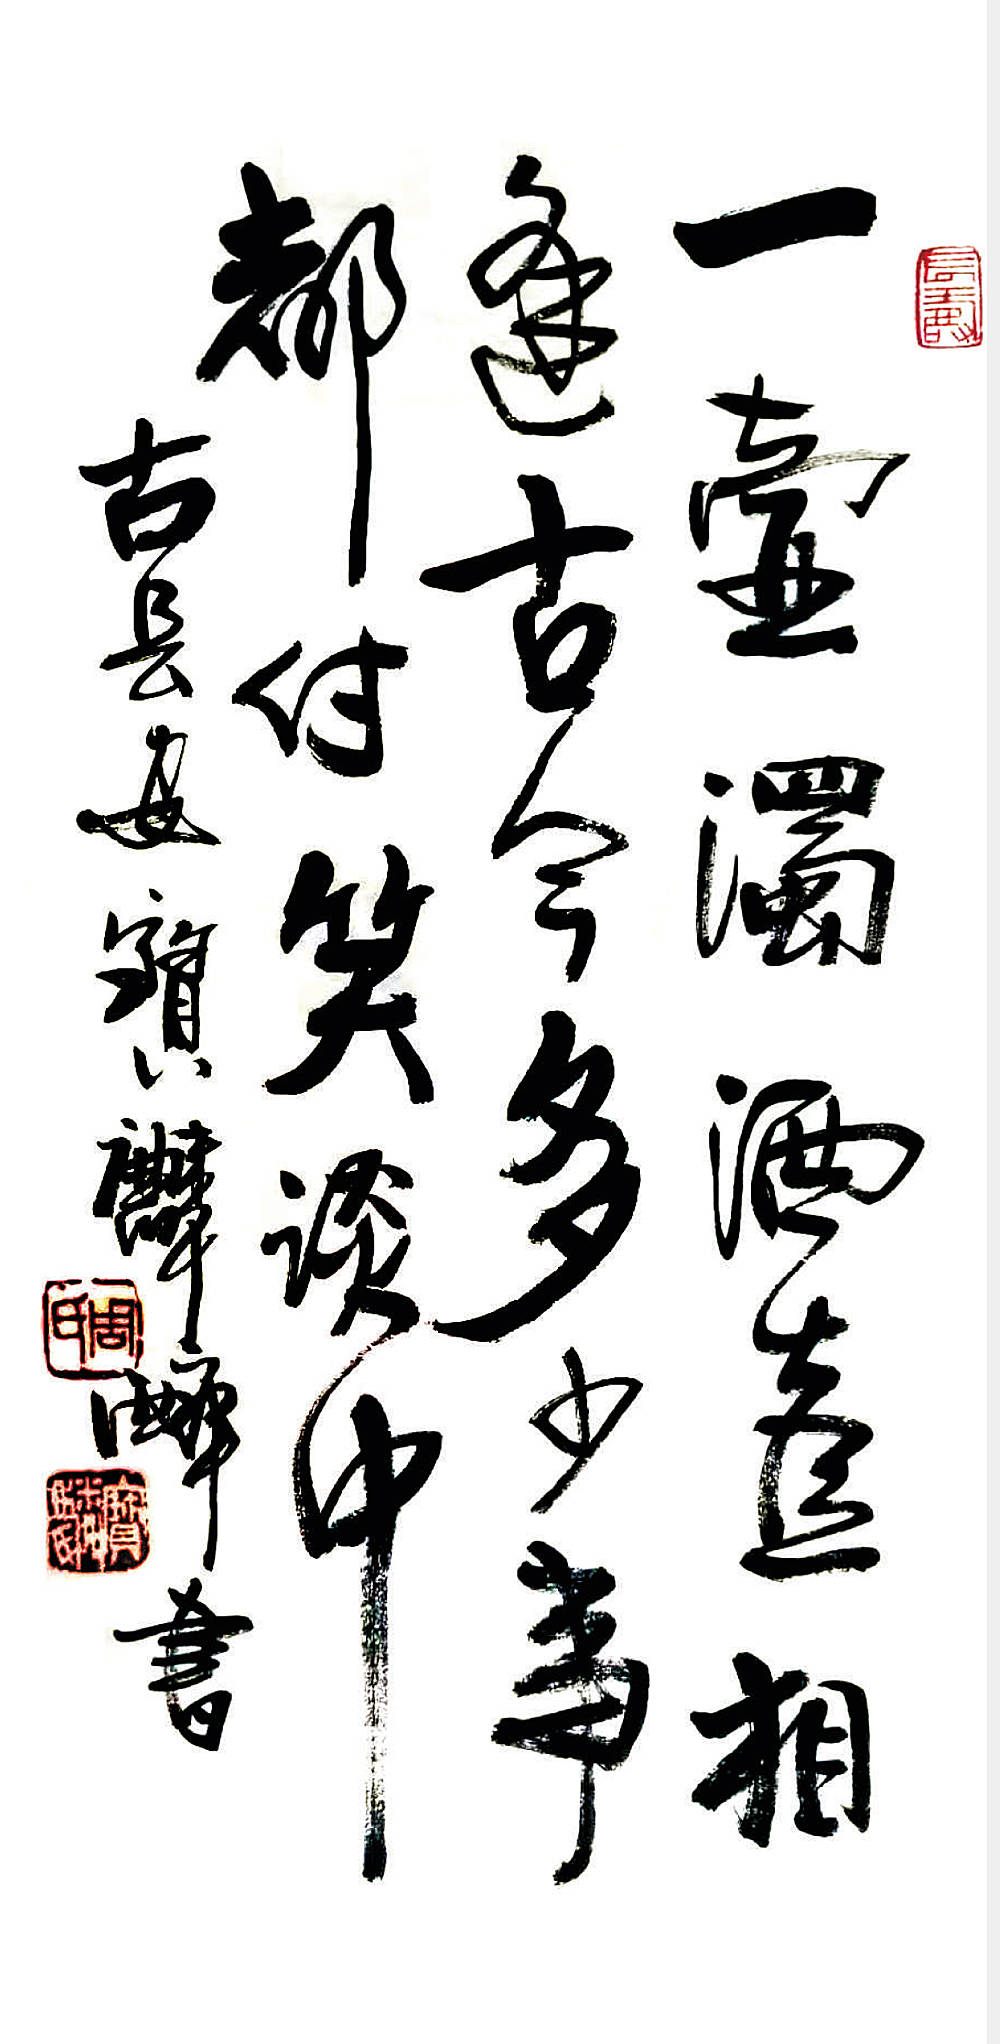 一壺濁酒喜相
逢古今多少事
都付笑談中
古長安寶書